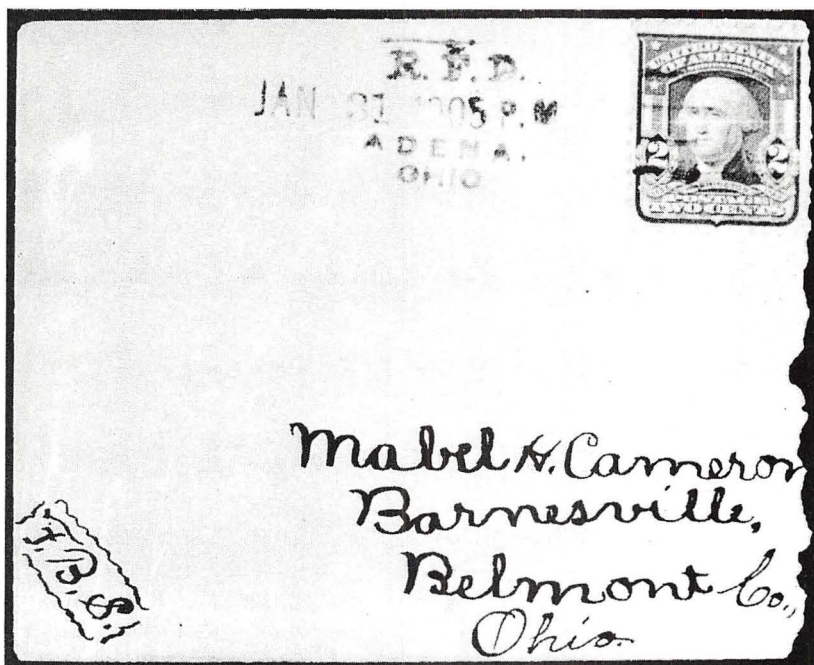 R. F. D.
JAN 31 1905 P.M
ADENA.
OHIO
UNITED STATES
OF AMERICA
2 2
TWO CENTS
Mabel H. Cameron
Barnesville,
Belmont Co.,
Ohio.
F.B.S.